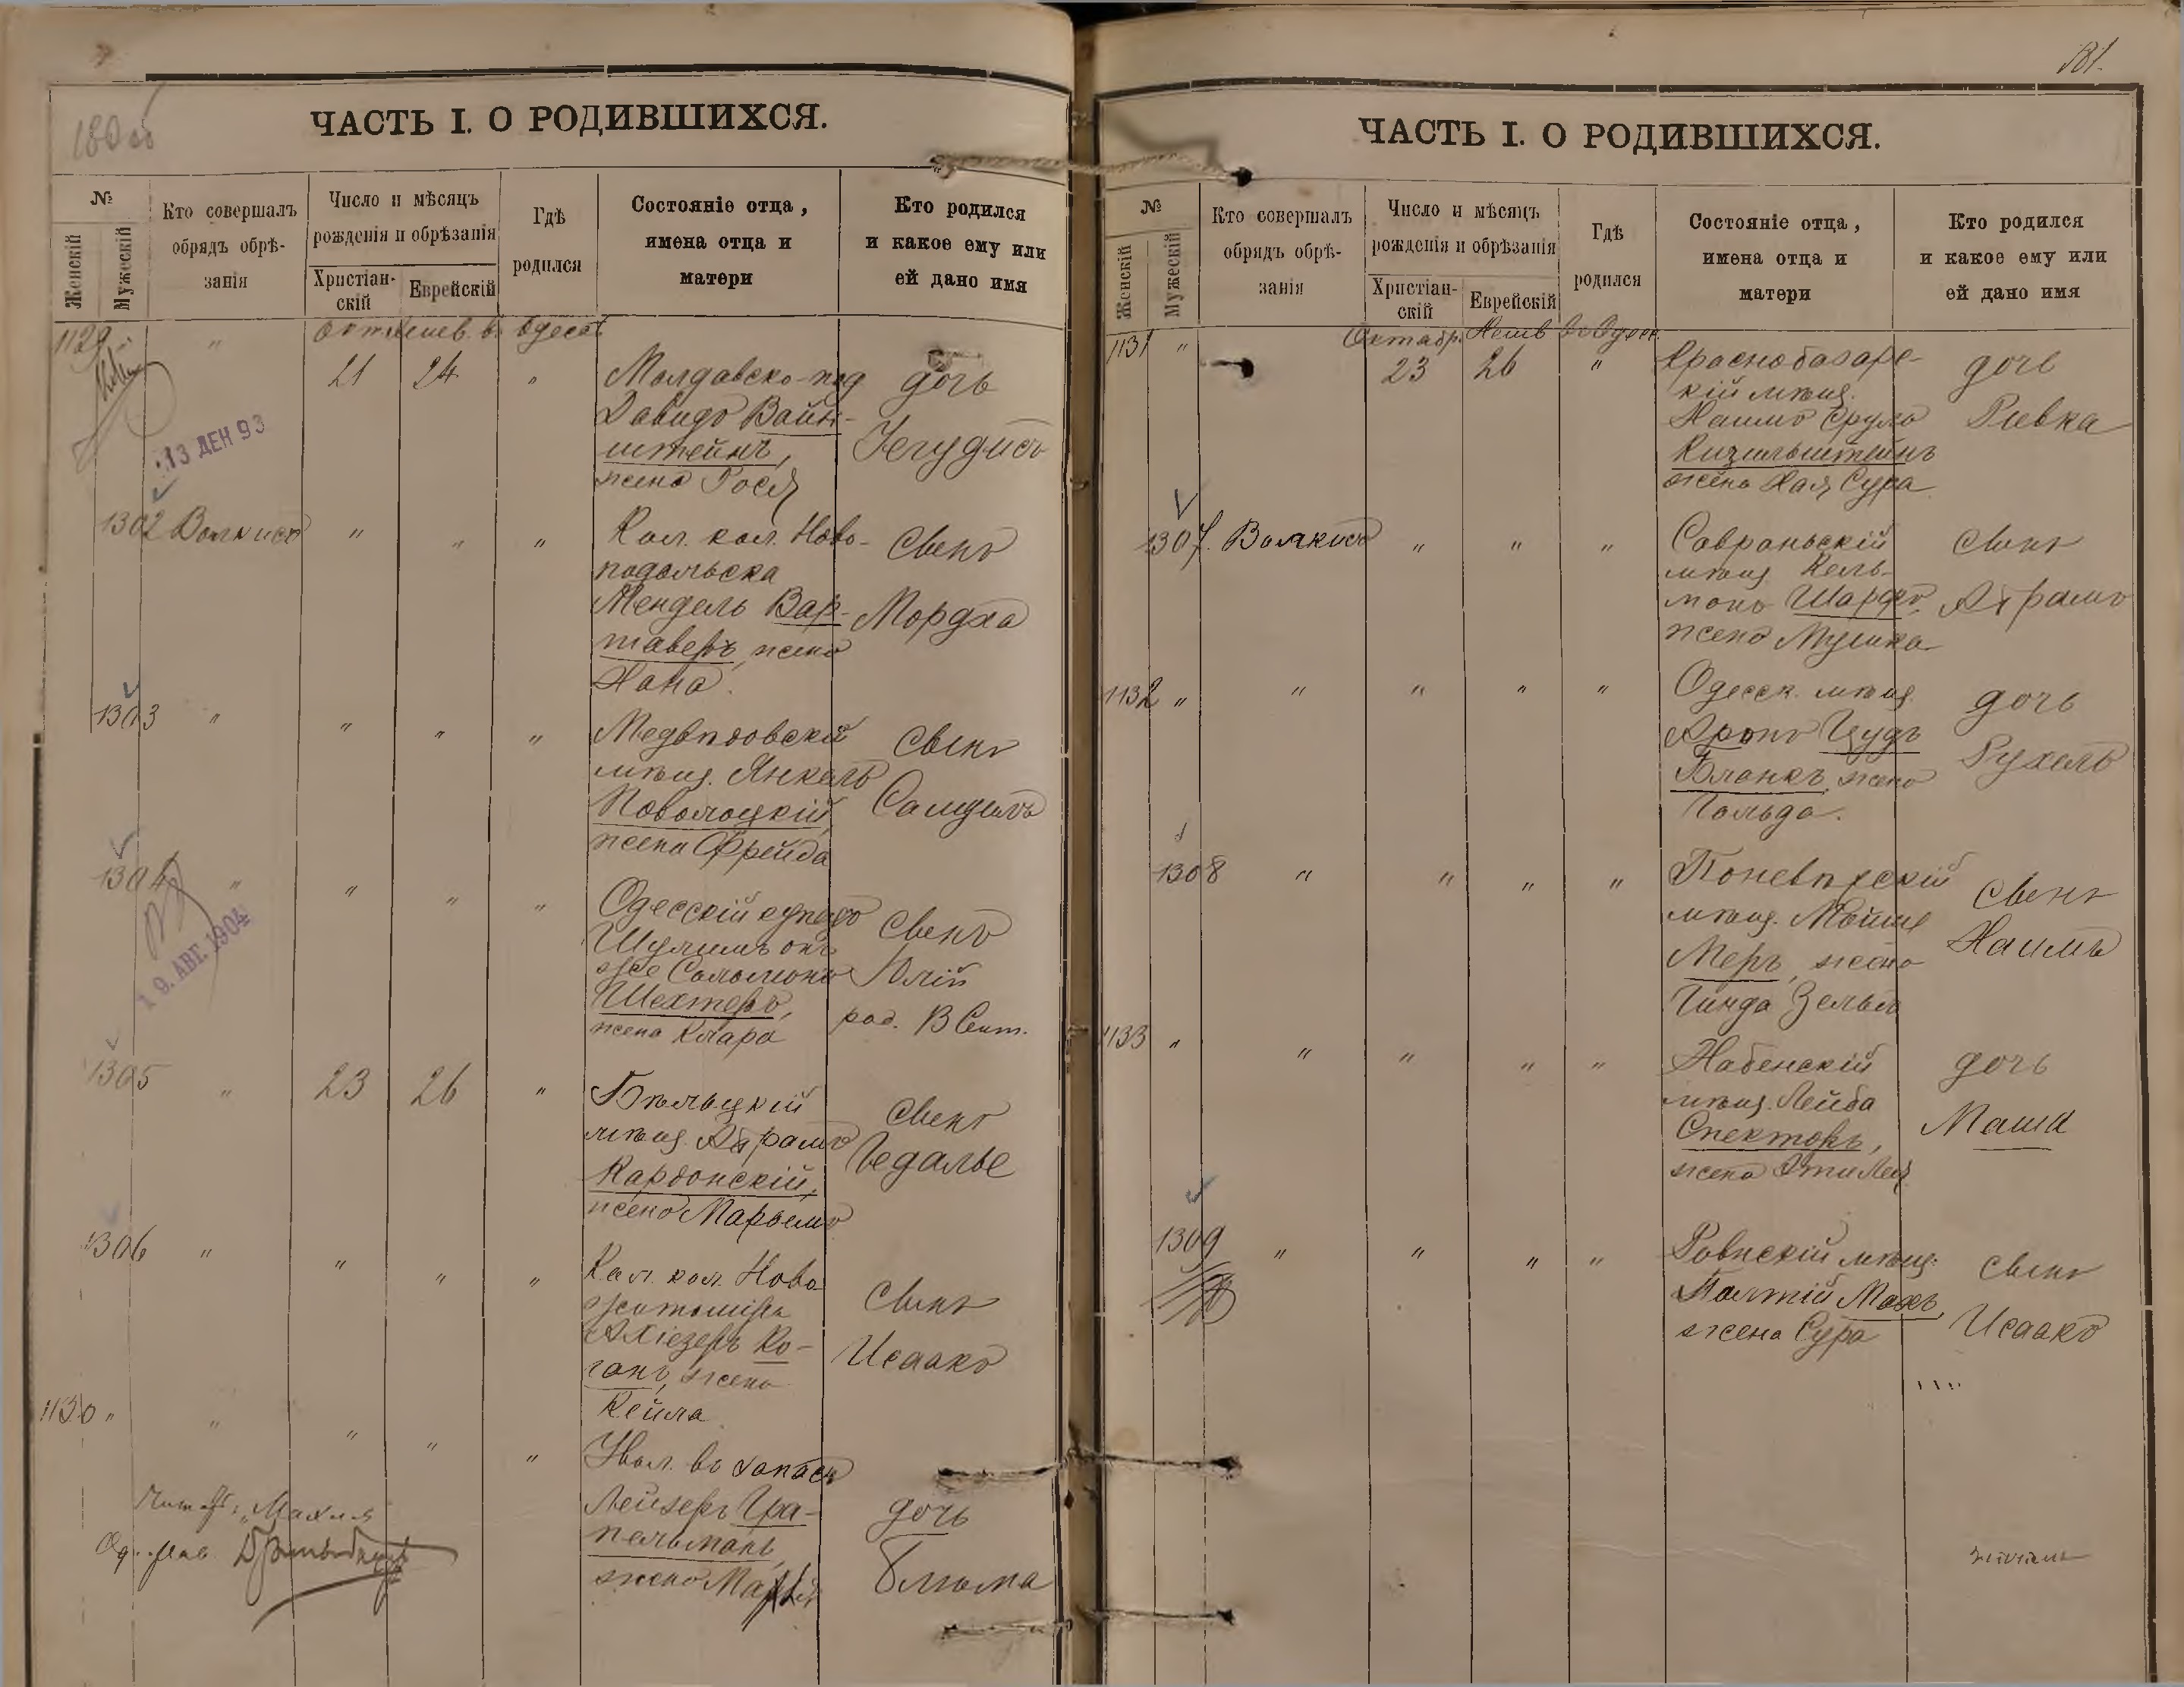 180 об
ЧАСТЬ I. О РОДИВШИХСЯ.
№
Женскій
Мужескій
Кто совершалъ
обрядъ обрѣ-
занія
Число и мѣсяцъ
рожденія и обрѣзанія
Христіан-
скій
Еврейскій
Гдѣ
родился
Состояніе отца,
имена отца и
матери
Кто родился
и какое ему или
ей дано имя
1129 "
21 24 "
Молдавско-под
Давидъ Вайн-
штейнъ,
жена Гося
дочь
Іегудисъ
13 ДЕК 93
1302 Волкисъ " " "
Кол. кол. Ново-
подольска
Мендель Вар-
таверъ, жена
Хана.
Сынъ
Мордха
1303 " " " "
Медвѣдовскій
мѣщ. Янкель
Поволоцкій,
жена Фрейда
Сынъ
1304 " " " "
Одесскій купецъ
Шулимъ онъ
же Соломонъ
Шехтеръ,
жена Клара
Сынъ
Юлій
род. 8 Сент.
19. АВГ. 1904
1305 " 23 26 "
Бѣльцкій
мѣщ. Абрамъ
Кардонскій,
жена Марьемъ
Сынъ
Гедалье
1306 " " " "
Кол. кол. Ново
житоміръ
Ахіезеръ Ко-
ганъ, жена
Кейла
Сынъ
Исаакъ
1130 " " " " "
Увол. въ запасъ
Лейзеръ
жена
дочь
Блюма
181.
ЧАСТЬ I. О РОДИВШИХСЯ.
№
Женскій
Мужескій
Кто совершалъ
обрядъ обрѣ-
занія
Число и мѣсяцъ
рожденія и обрѣзанія
Христіан-
скій
Еврейскій
Гдѣ
родился
Состояніе отца,
имена отца и
матери
Кто родился
и какое ему или
ей дано имя
Октябр. Хешв Въ Одес.
1131 " 23 26 "
Краснобазарс-
кій мѣщ.
Хаимъ Сруль
Кизельштейнъ
жена Хая Сура
дочь
Ривка
1307. Волкисъ " " "
Савраньскій
мѣщ. Кель-
монъ Шарфъ,
жена Мушка
Сынъ
Абрамъ
1132 " " " " "
Одесск. мѣщ.
Аронъ
Бланкъ, жена
Гольда.
дочь
Рухель
1308 " " " "
Поневѣжскій
мѣщ. Мойше
Меръ, жена
Гинда Зельда
Сынъ
Хаимъ
1133 " " " " "
мѣщ. Лейба
Спекторъ,
жена Эти Лея
дочь
Маша
1309 " " " "
Ровнскій мѣщ.
жена Сура
Сынъ
Исаакъ